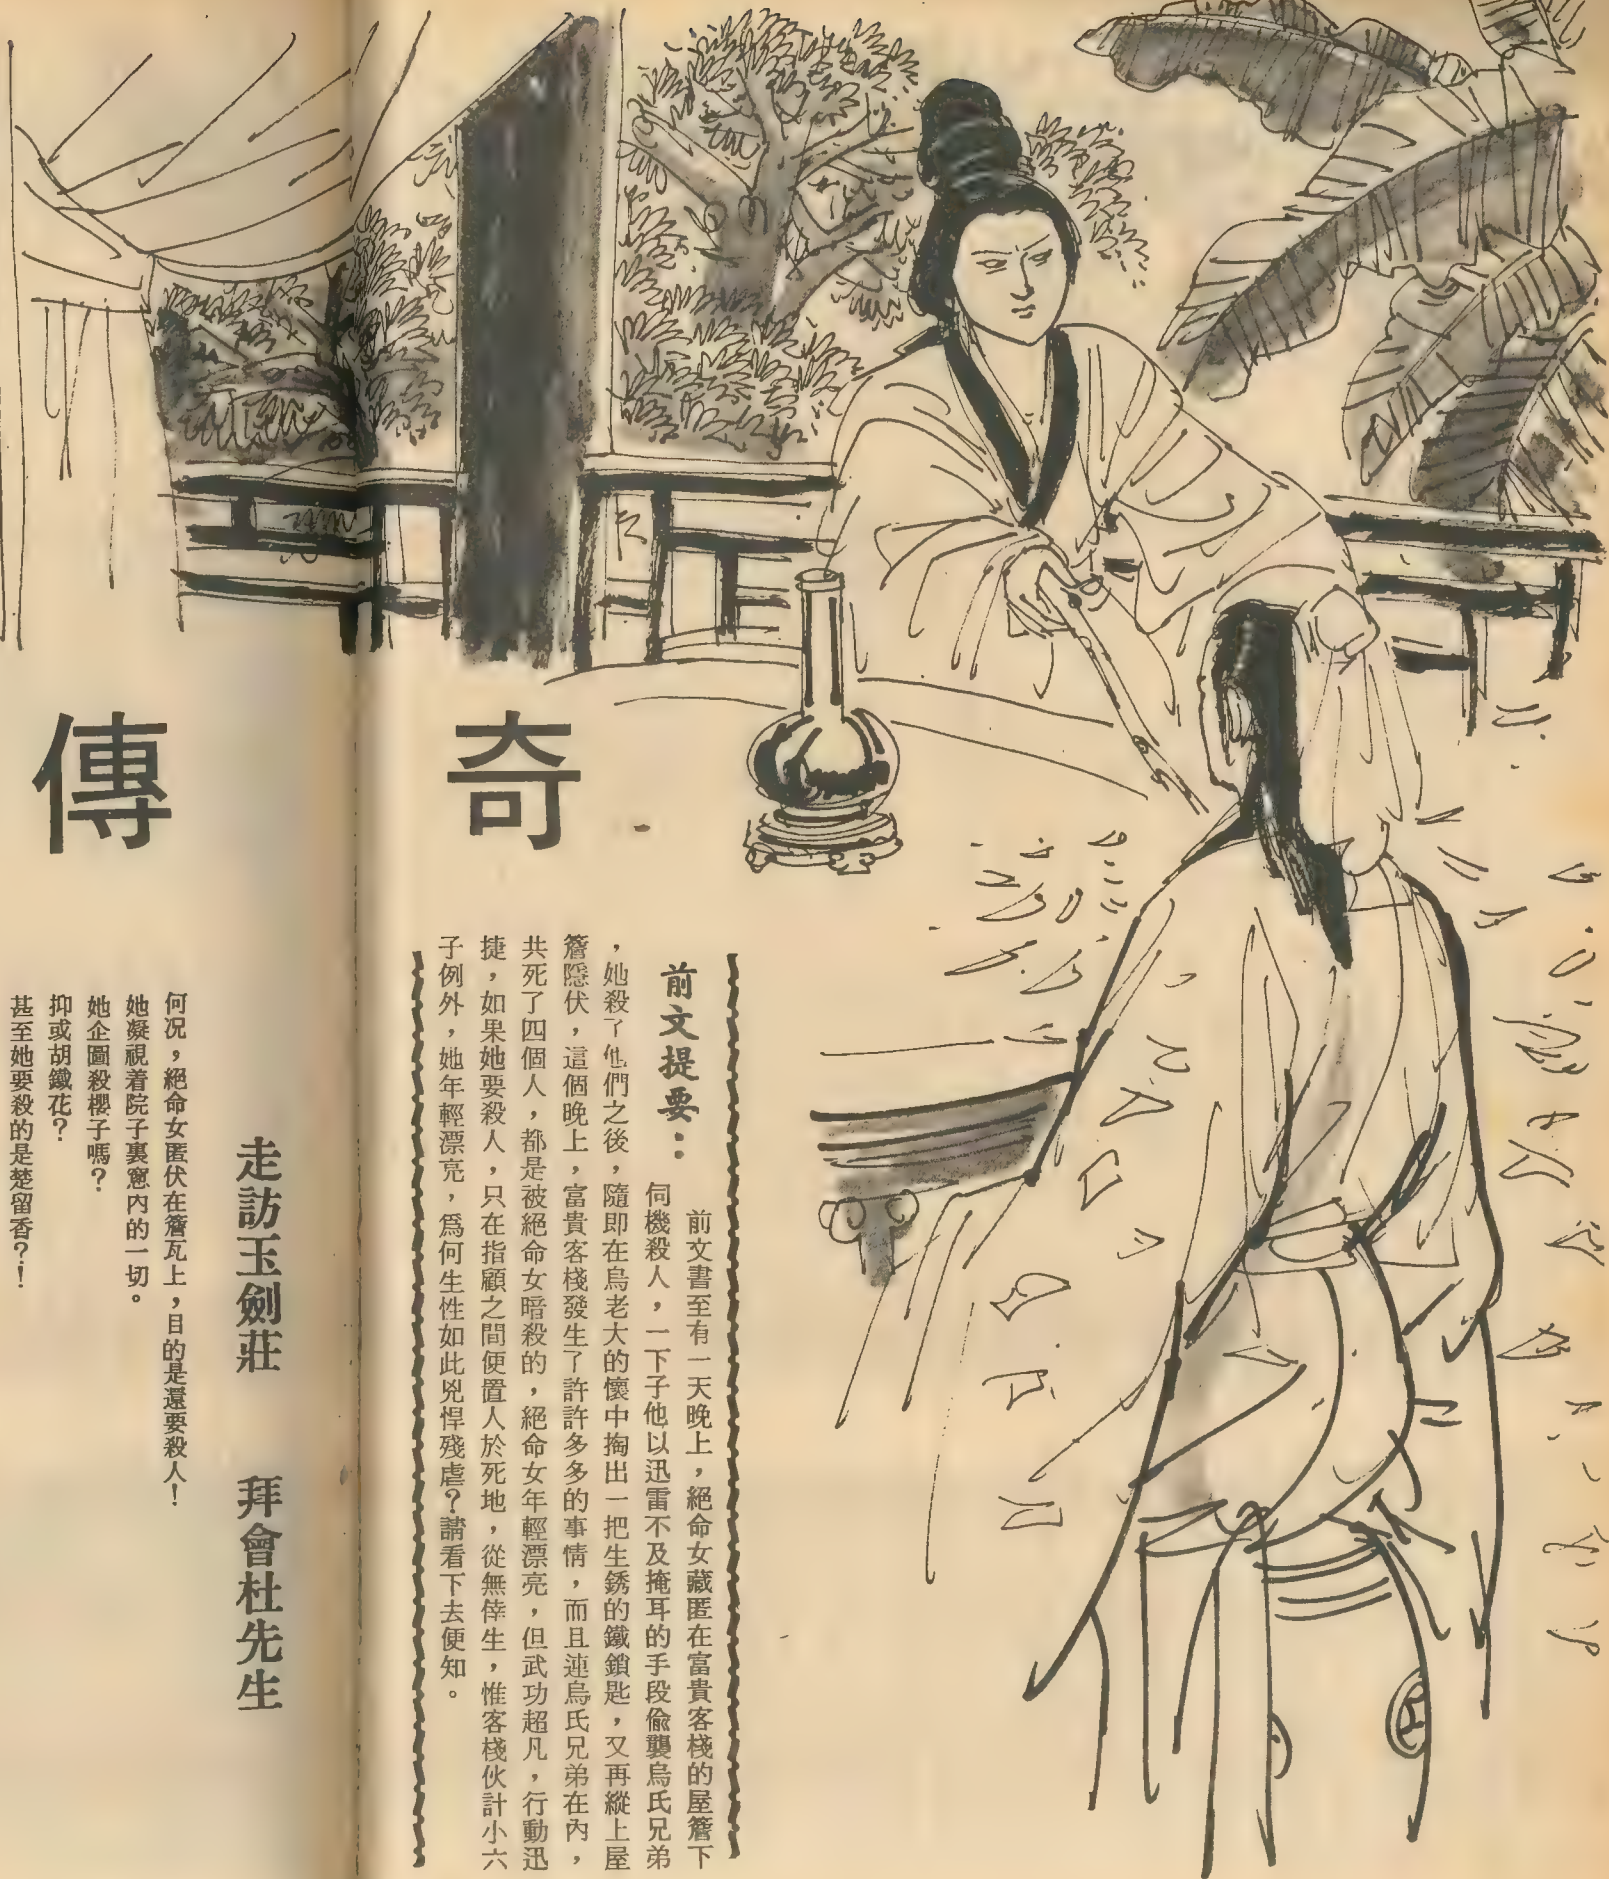 奇
傳
前文提要：
前文書至有一天晚上，絕命女藏匿在富貴客棧的屋簷下
伺機殺人，一下子他以迅雷不及掩耳的手段偷襲烏氏兄弟
，她殺了他們之後，隨即在烏老大的懷中掏出一把生銹的鐵鎖匙，又再縱上屋
簷隱伏，這個晚上，富貴客棧發生了許許多多的事情，而且連烏氏兄弟在內，
共死了四個人，都是被絕命女暗殺的，絕命女年輕漂亮，但武功超凡，行動迅
捷，如果她要殺人，只在指顧之間便置人於死地，從無倖生，惟客棧伙計小六
子例外，她年輕漂亮，爲何生性如此兇悍殘虐？請看下去便知。
走訪玉劍莊　拜會杜先生
何況，絕命女匿伏在簷瓦上，目的是還要殺人！
她凝視着院子裏窻內的一切。
她企圖殺櫻子嗎？
抑或胡鐵花？
甚至她要殺的是楚留香？！